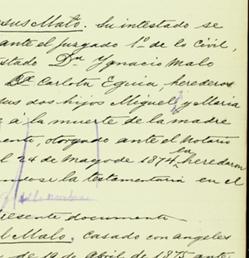 esus Malo. Su intestado se
ante el juzgado 1º de lo Civil,
stado Dn Ygnacio Malo
Dª Carlota Eguia, herederos
sus dos hijos Miguel y Maria
á la muerte de la madre
ento, otorgado ante el Notario
l 24 de Mayo de 1874, heredaron
la testamentaria en el
presente documento
l Malo. Casado con Angeles
de 19 de Abril de 1875 ante